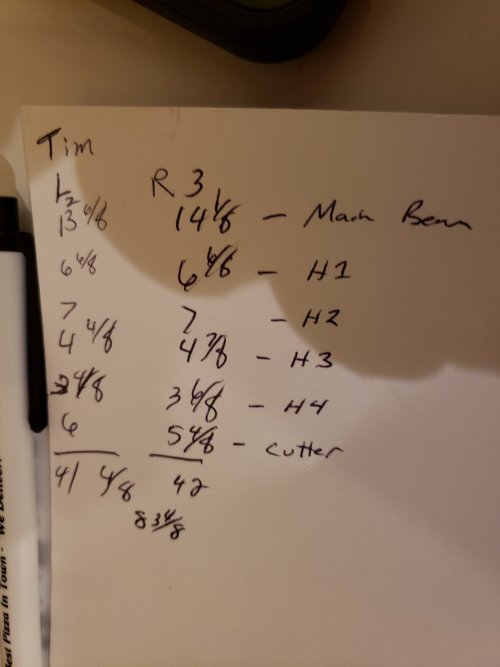 Tim
L2 R 3
13 6/8 14 1/8 - Main Beam
6 6/8 6 6/8 - H1
7 7 - H2
4 4/8 4 7/8 - H3
3 4/8 3 6/8 - H4
6 5 4/8 - cutter
41 4/8 42
83 4/8
Pizza In Town - "We